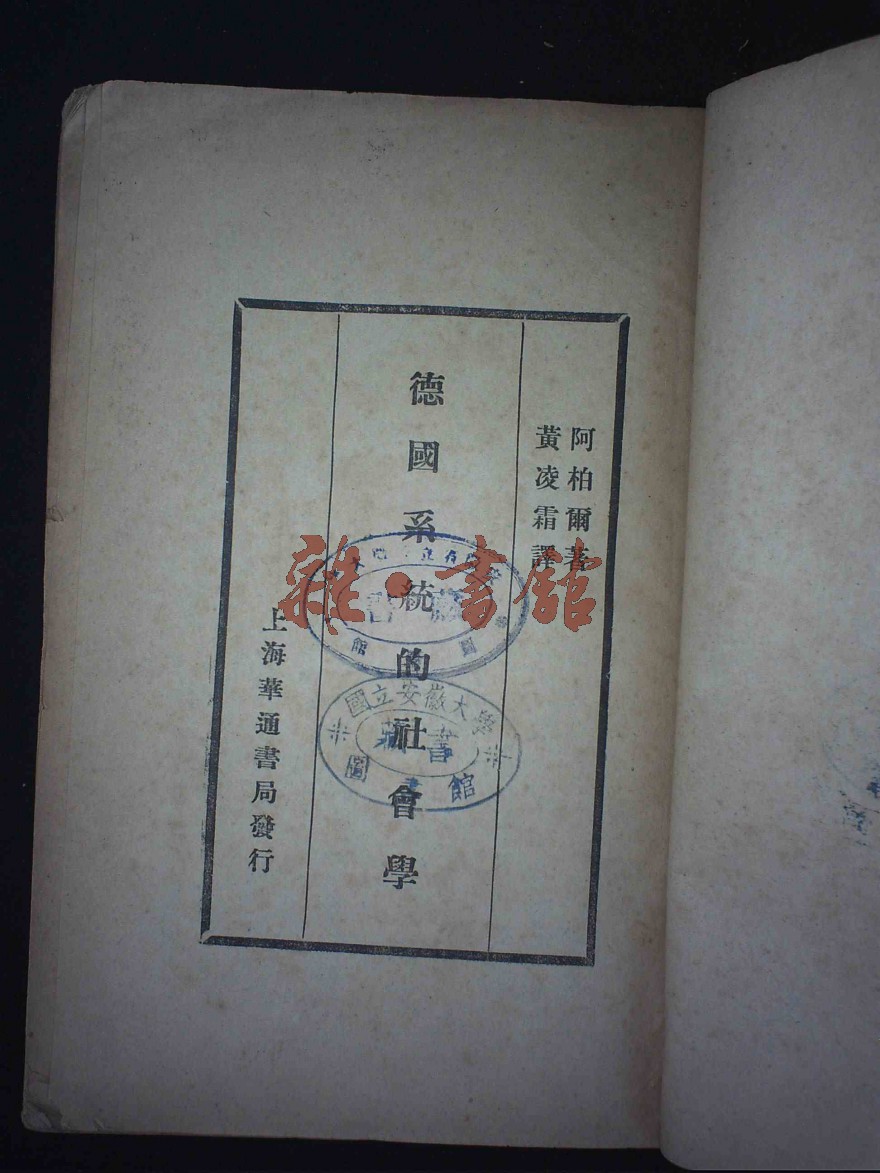 阿柏爾著
黃凌霜譯
德國系統的社會學
上海華通書局發行
雜·書館
國立安徽大學
圖書館
藏書